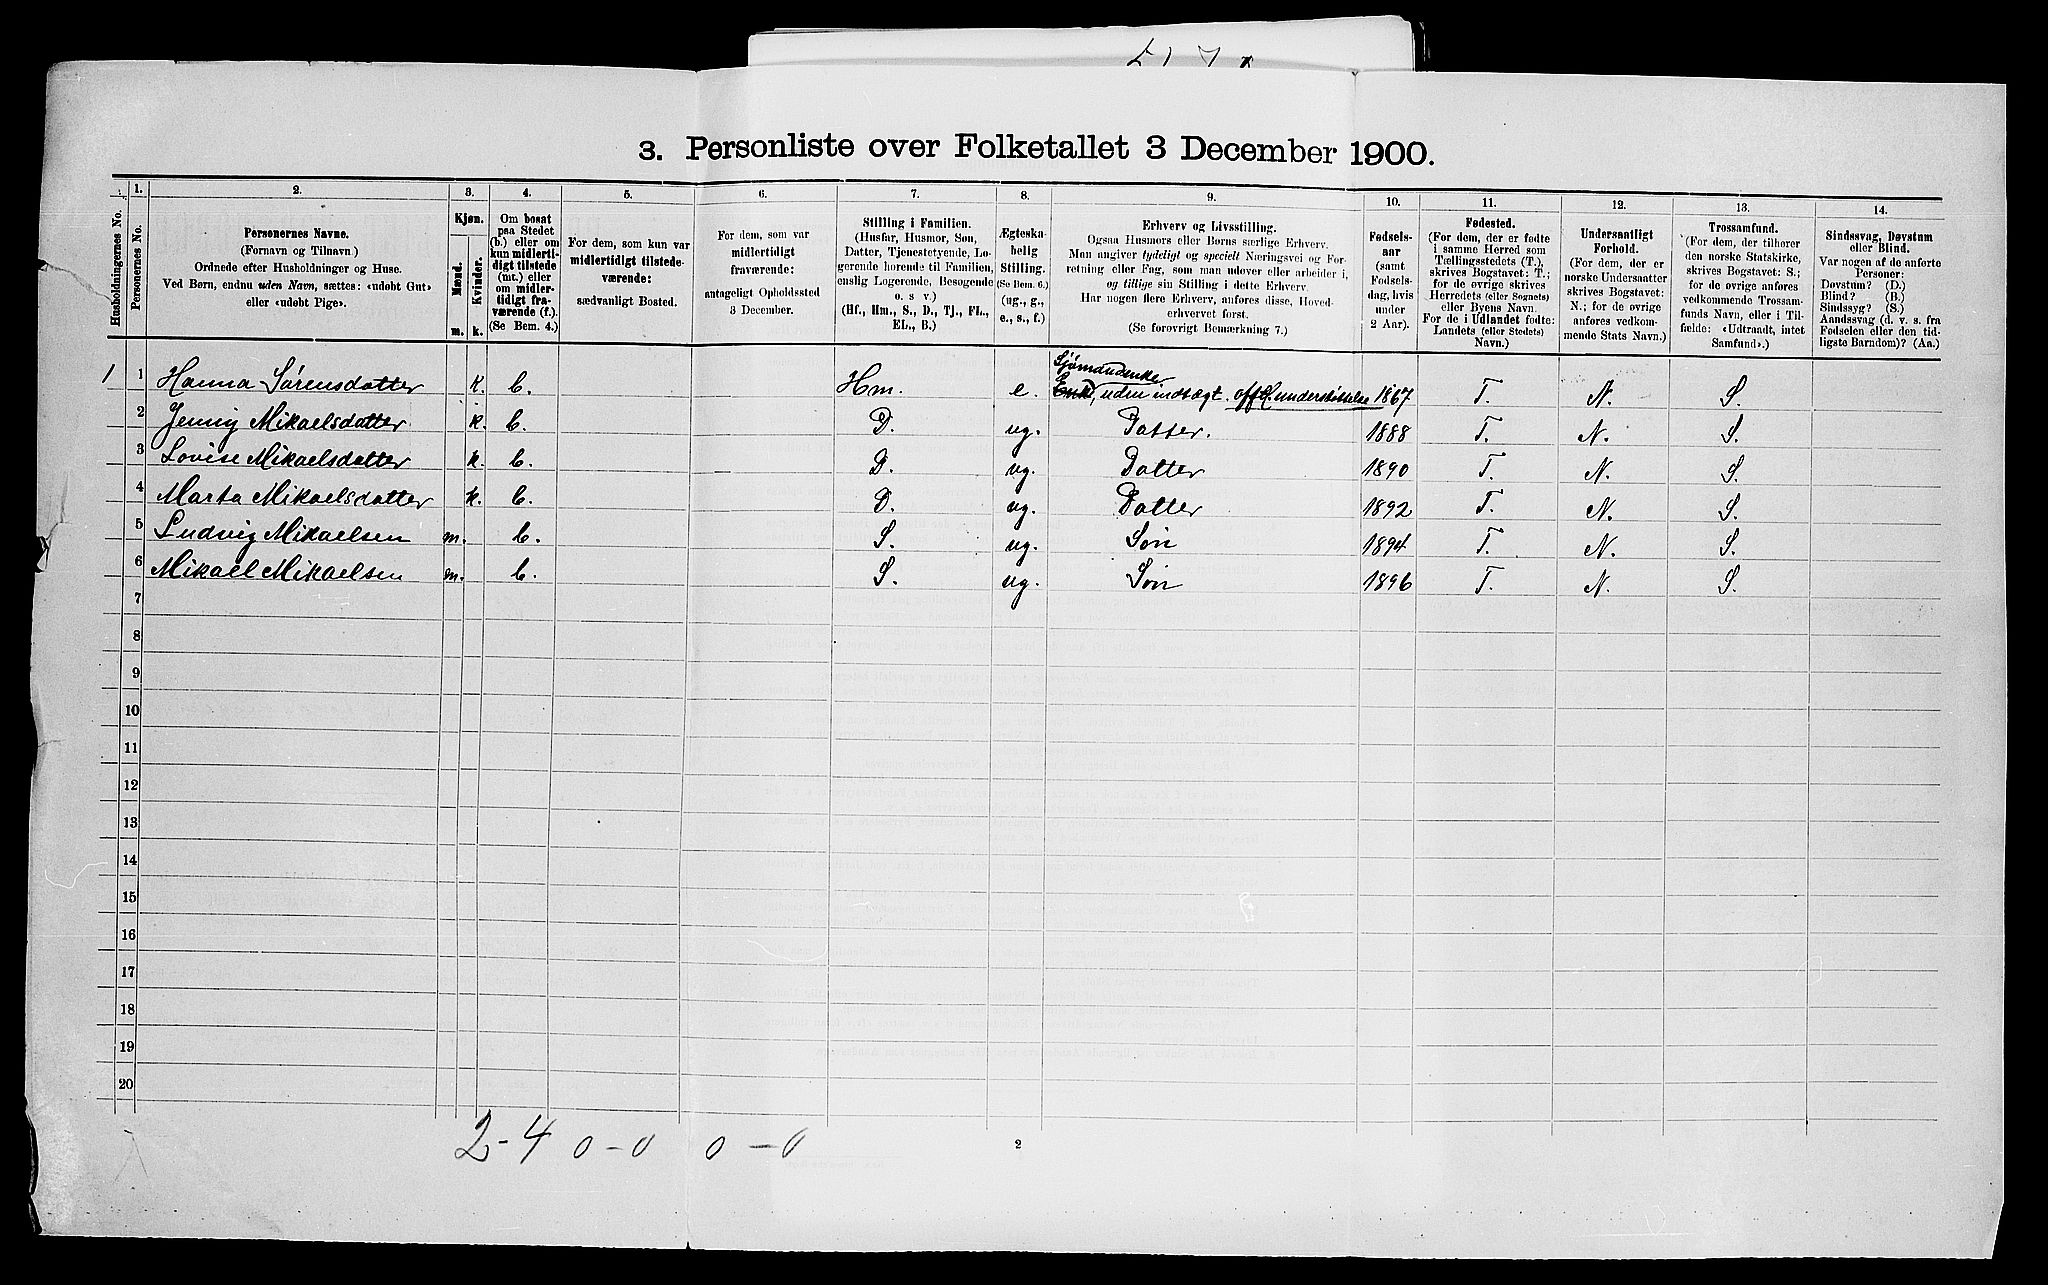 3. Personliste over Folketallet 3 December 1900.
Husholdningernes No.
1.
Personernes No.
2.
Personernes Navne.
(Fornavn og Tilnavn.)
Ordnede efter Husholdninger og Huse.
Ved Børn, endnu uden Navn, sættes: «udøbt Gut»
eller «udøbt Pige».
3.
Kjøn.
Mænd.
Kvinder.
m.
k.
4.
Om bosat
paa Stedet
(b.) eller om
kun midlerti-
digt tilstede
(mt.) eller
om midler-
tidigt fra-
værende (f.)
(Se Bem. 4.)
5.
For dem, som kun var
midlertidigt tilstede-
værende:
sædvanligt Bosted.
6.
For dem, som var
midlertidigt
fraværende:
antageligt Opholdssted
3 December.
7.
Stilling i Familien.
(Husfar, Husmor, Søn,
Datter, Tjenestetyende, Lo-
gerende hørende til Familien,
enslig Logerende, Besøgende
o. s v.)
(Hf., Hm., S., D., TJ., FL.,
EL., B.)
8.
Ægteska-
belig
Stilling.
(Se Bem. 6.)
(ug., g.,
e., s., f.)
9.
Erhverv og Livsstilling.
Ogsaa Husmors eller Børns særlige Erhverv.
Man angiver tydeligt og specielt Næringsvei og For-
retning eller Fag, som man udøver eller arbeider i,
og tillige sin Stilling i dette Erhverv.
Har nogen flere Erhverv, anføres disse, Hoved-
erhvervet først.
(Se forøvrigt Bemærkning 7.)
10.
Fødsels-
aar
(samt
Fødsels-
dag, hvis
under
2 Aar).
11.
Fødested.
(For dem, der er fødte
i samme Herred som
Tællingsstedets (T.),
skrives Bogstavet: T.;
for de øvrige skrives
Herredets (eller Sognets)
eller Byens Navn.
For de i Udlandet fødte:
Landets (eller Stedets)
Navn.)
12.
Undersaatligt
Forhold.
(For dem, der er
norske Undersaatter
skrives Bogstavet:
N.; for de øvrige
anføres vedkom-
mende Stats Navn.)
13.
Trossamfund.
(For dem, der tilhører
den norske Statskirke,
skrives Bogstavet: S.;
for de øvrige anføres
vedkommende Trossam-
funds Navn, eller i Til-
fælde: «Udtraadt, intet
Samfund».)
14.
Sindssvag, Døvstum
eller Blind.
Var nogen af de anførte
Personer:
Døvstum? (D.)
Blind? (B.)
Sindssyg? (S.)
Aandssvag (d. v. s. fra
Fødselen eller den tid-
ligste Barndom)? (Aa.)
Sjømdudenke
1 1 Hanna Sørensdatter k. b. Hm. e. Enke, uden indtægt. offtl. understøttelse 1867 T. N. S.
2 Jenny Mikaelsdatter k. b. D. ug. Datter. 1888 T. N. S.
3 Lovise Mikaelsdatter k. b. D. ug. Datter 1890 T. N. S.
4 Marta Mikaelsdatter k. b. D. ug. Datter 1892 T. N. S.
5 Ludvig Mikaelsen m. b. S. ug. Søn 1894 T. N. S.
6 Mikael Mikaelsen m. b. S. ug. Søn 1896 T. N. S.
7
8
9
10
11
12
13
14
15
16
17
18
19
20
2-4 0-0 0-0
2